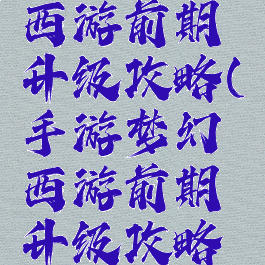 西游前期
升级攻略(
手游梦幻
西游前期
升级攻略